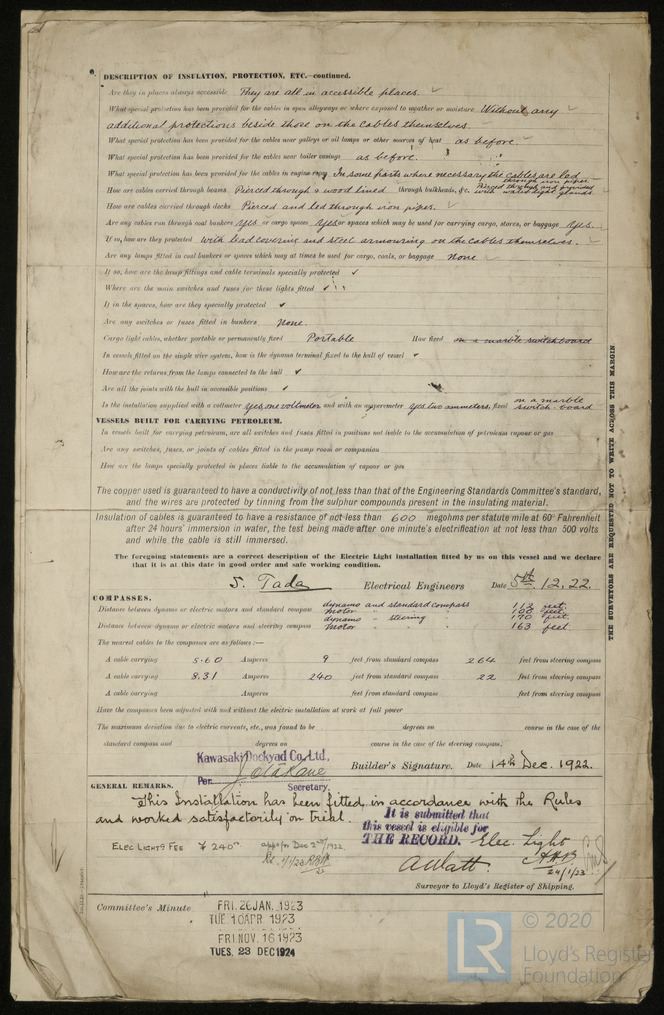 DESCRIPTION OF INSULATION, PROTECTION, ETC.—continued.
Are they in places always accessible They are all in accessible places. ✓
What special protection has been provided for the cables in open alleyways or where exposed to weather or moisture Without any ✓
additional protections beside those on the cables themselves.
What special protection has been provided for the cables near galleys or oil lamps or other sources of heat as before. ✓
What special protection has been provided for the cables near boiler casings as before. ✓
What special protection has been provided for the cables in engine room In some parts where necessary the cables are led
through iron pipes.
How are cables carried through beams Pierced through & wood lined through bulkheads, &c. Pierced through and provided
with water tight glands.
How are cables carried through decks Pierced and led through iron pipes. ✓
Are any cables run through coal bunkers yes or cargo spaces yes or spaces which may be used for carrying cargo, stores, or baggage yes.
If so, how are they protected with lead covering and steel armouring on the cables themselves. ✓
Are any lamps fitted in coal bunkers or spaces which may at times be used for cargo, coals, or baggage none ✓
If so, how are the lamp fittings and cable terminals specially protected ✓
Where are the main switches and fuses for these lights fitted ✓
If in the spaces, how are they specially protected ✓
Are any switches or fuses fitted in bunkers none.
Cargo light cables, whether portable or permanently fixed Portable How fixed on a marble switchboard
In vessels fitted on the single wire system, how is the dynamo terminal fixed to the hull of vessel ✓
How are the returns from the lamps connected to the hull ✓
Are all the joints with the hull in accessible positions ✓
Is the installation supplied with a voltmeter yes, one voltmeter and with an amperemeter yes, two ammeters, fixed on a marble
switch-board
VESSELS BUILT FOR CARRYING PETROLEUM.
In vessels built for carrying petroleum, are all switches and fuses fitted in positions not liable to the accumulation of petroleum vapour or gas
Are any switches, fuses, or joints of cables fitted in the pump room or companion
How are the lamps specially protected in places liable to the accumulation of vapour or gas
The copper used is guaranteed to have a conductivity of not less than that of the Engineering Standards Committee's standard,
and the wires are protected by tinning from the sulphur compounds present in the insulating material.
Insulation of cables is guaranteed to have a resistance of not less than 600 megohms per statute mile at 60° Fahrenheit
after 24 hours' immersion in water, the test being made after one minute's electrification at not less than 500 volts
and while the cable is still immersed.
The foregoing statements are a correct description of the Electric Light installation fitted by us on this vessel and we declare
that it is at this date in good order and safe working condition.
S. Tada Electrical Engineers Date 5th. 12. 22.
COMPASSES.
Distance between dynamo or electric motors and standard compass dynamo and standard compass 113 feet.
motor " " "
Distance between dynamo or electric motors and steering compass dynamo " steering " 170 feet.
motor " " " 163 feet.
The nearest cables to the compasses are as follows:—
A cable carrying 5.60 Amperes 9 feet from standard compass 264 feet from steering compass
A cable carrying 8.31 Amperes 240 feet from standard compass 22 feet from steering compass
A cable carrying Amperes feet from standard compass feet from steering compass
Have the compasses been adjusted with and without the electric installation at work at full power
The maximum deviation due to electric currents, etc., was found to be degrees on course in the case of the
standard compass and degrees on course in the case of the steering compass.
Kawasaki Dockyad Co., Ltd,
Per Builder's Signature. Date 14th Dec. 1922.
Secretary.
GENERAL REMARKS.
This Installation has been fitted in accordance with the Rules
and worked satisfactorily on trial.
It is submitted that
this vessel is eligible for
THE RECORD. Elec. Light
ELEC LIGHTS FEE ¥ 240
24/1/23
A Watt.
Surveyor to Lloyd's Register of Shipping.
Committee's Minute FRI. 26 JAN. 1923
TUE 10 APR. 1923
FRI. NOV. 16 1923
TUES. 23 DEC 1924
THE SURVEYORS ARE REQUESTED NOT TO WRITE ACROSS THIS MARGIN.
© 2020
LR
Lloyd's Register
Foundation